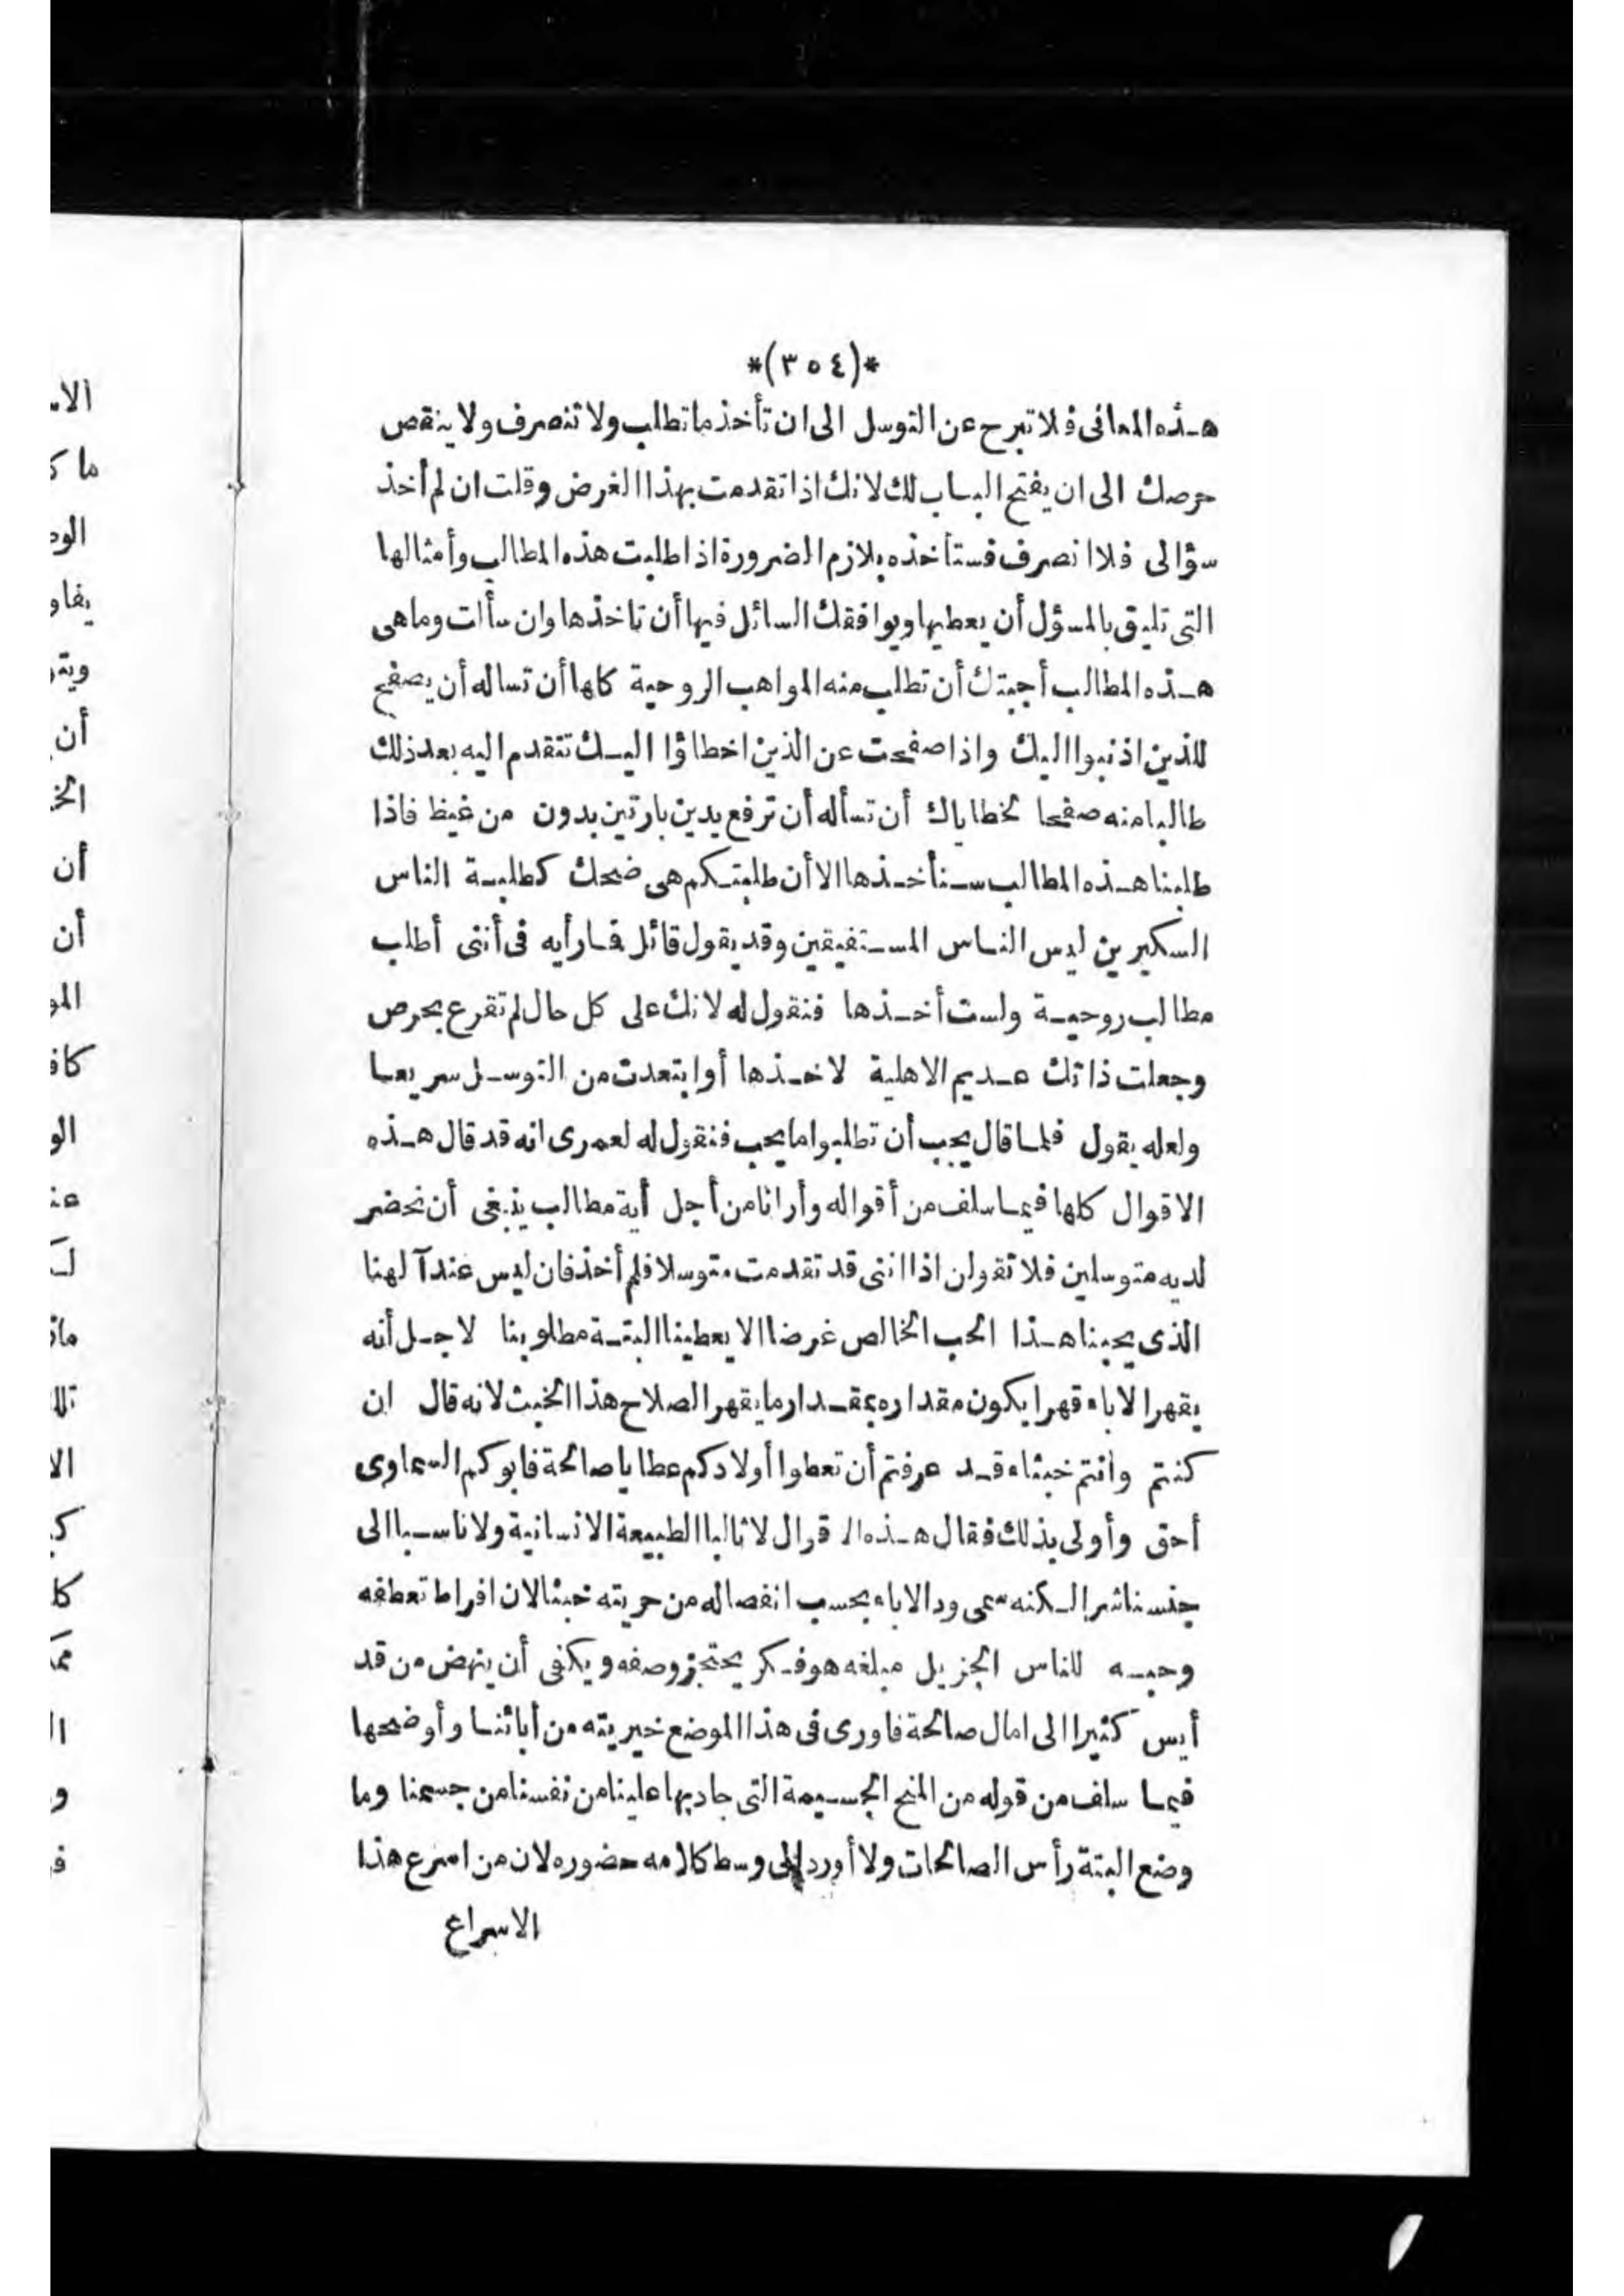 *(٣٥٤)*
هذه المعانى فلا تبرح عن التوسل الى ان تأخذ ما تطلب ولا تنصرف ولا ينقص
حرصك الى ان يفتح الباب لك لانك اذا تقدمت بهذا الغرض وقلت ان لم أخذ
سؤالى فلا انصرف فستأخذه بلازم الضرورة اذا طلبت هذه المطالب وأمثالها
التى تليق بالمسؤل أن يعطيها ويوافقك السائل فيها أن تاخذها وان سألت وما هى
هذه المطالب أجبتك أن تطلب منه المواهب الروحية كلها أن تساله أن يصفح
للذين اذنبوا اليك واذا صفحت عن الذين اخطاؤا اليك تتقدم اليه بعد ذلك
طالبا منه صفحا لخطاياك أن تسأله أن ترفع يدين بارتين بدون من غيظ فاذا
طلبنا هذه المطالب سنأخذها الا أن طلبتكم هى ضحك كطلبة الناس
السكيرين ليس الناس المستفيقين وقد يقول قائل فما رأيه فى أننى أطلب
مطالب روحية ولست أخذها فنقول له لانك على كل حال لم تقرع بحرص
وجعلت ذاتك عديم الاهلية لاخذها أو ابتعدت من التوسل سريعا
ولعله يقول فلما قال يجب أن تطلبوا ما يجب فنقول له لعمرى انه قد قال هذه
الاقوال كلها فيما سلف من أقواله وأرانا من أجل أية مطالب ينبغى أن نحضر
لديه متوسلين فلا تقولن اذا اننى قد تقدمت متوسلا فلم أخذ فان ليس عند آلهنا
الذى يحبنا هذا الحب الخالص غرضا الا يعطينا البتة مطلوبنا لاجل أنه
يقهر الاباء قهرا يكون مقداره بمقدار ما يقهر الصلاح هذا الخبث لانه قال ان
كنتم وانتم خبثاء قد عرفتم أن تعطوا أولادكم عطايا صالحة فابوكم السماوى
أحق وأولى بذلك فقال هذه الاقوال لا ثالبا الطبيعة الانسانية ولا ناسبا الى
جنسنا شرا لكنه سمى ود الاباء بحسب انفصاله من حريته خبثا لان افراط تعطفه
وحبه للناس الجزيل مبلغه هو فكر يحتجز وصفه ويكفى أن ينهض من قد
أيس كثيرا الى امال صالحة فاورى فى هذا الموضع خيريته من أبائنا وأوضحها
فيما سلف من قوله من المنح الجسيمة التى جاد بها علينا من نفسنا من جسمنا وما
وضع البتة رأس الصالحات ولا أورد الى وسط كلامه حضوره لان من اسرع هذا
الاسراع